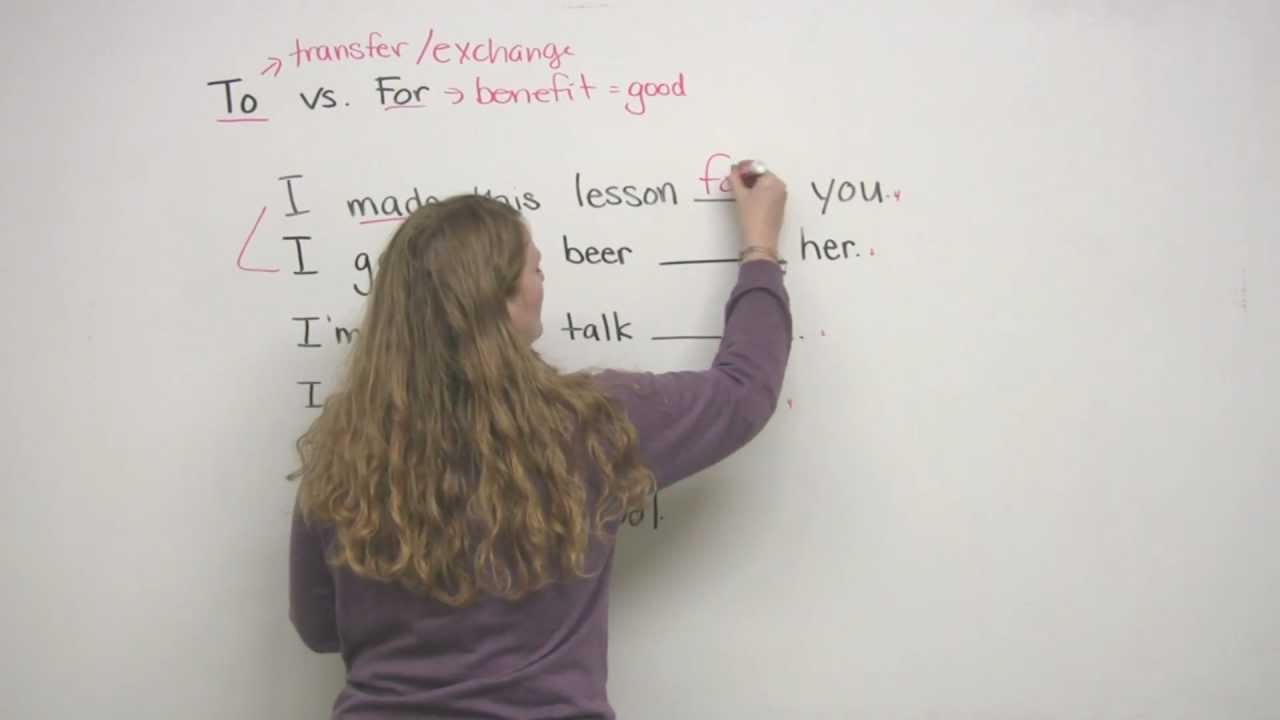 → transfer/exchange
To vs. For → benefit = good
I made this lesson fo you.
I beer ____ her.
I'm talk ____ .
I